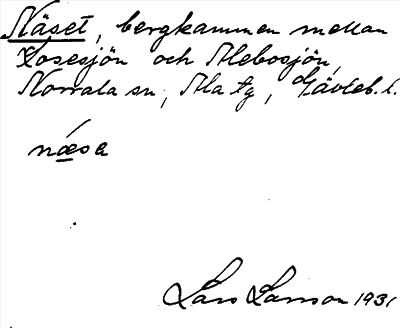 Näset, bergkammen mellan
Losesjön och Alebosjön,
Norrala sn, Ala tg, Gävleb. l.
næsa
Lars Larsson 1931